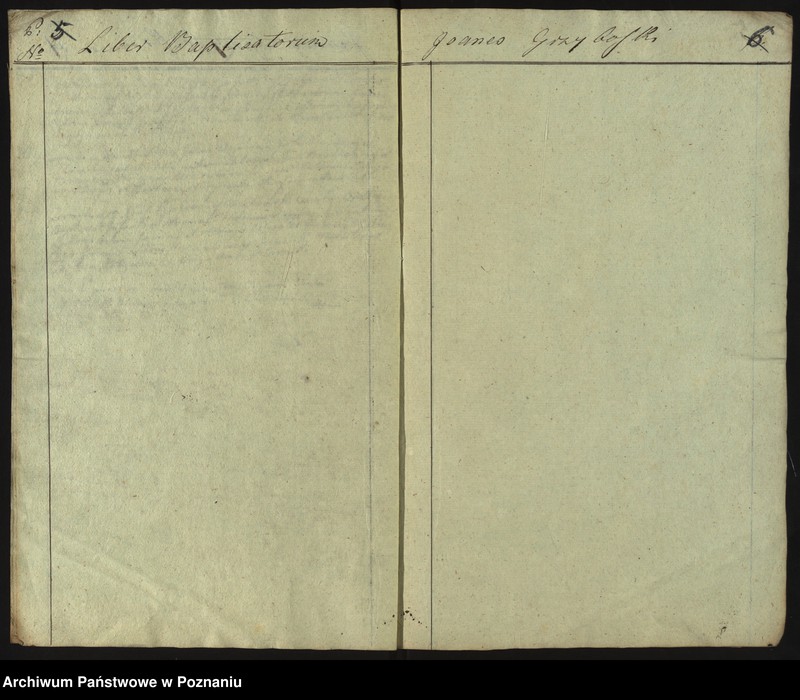 P: 5
No Liber Baptisatorum
Joanes Grzyboſki 6
Archiwum Państwowe w Poznaniu